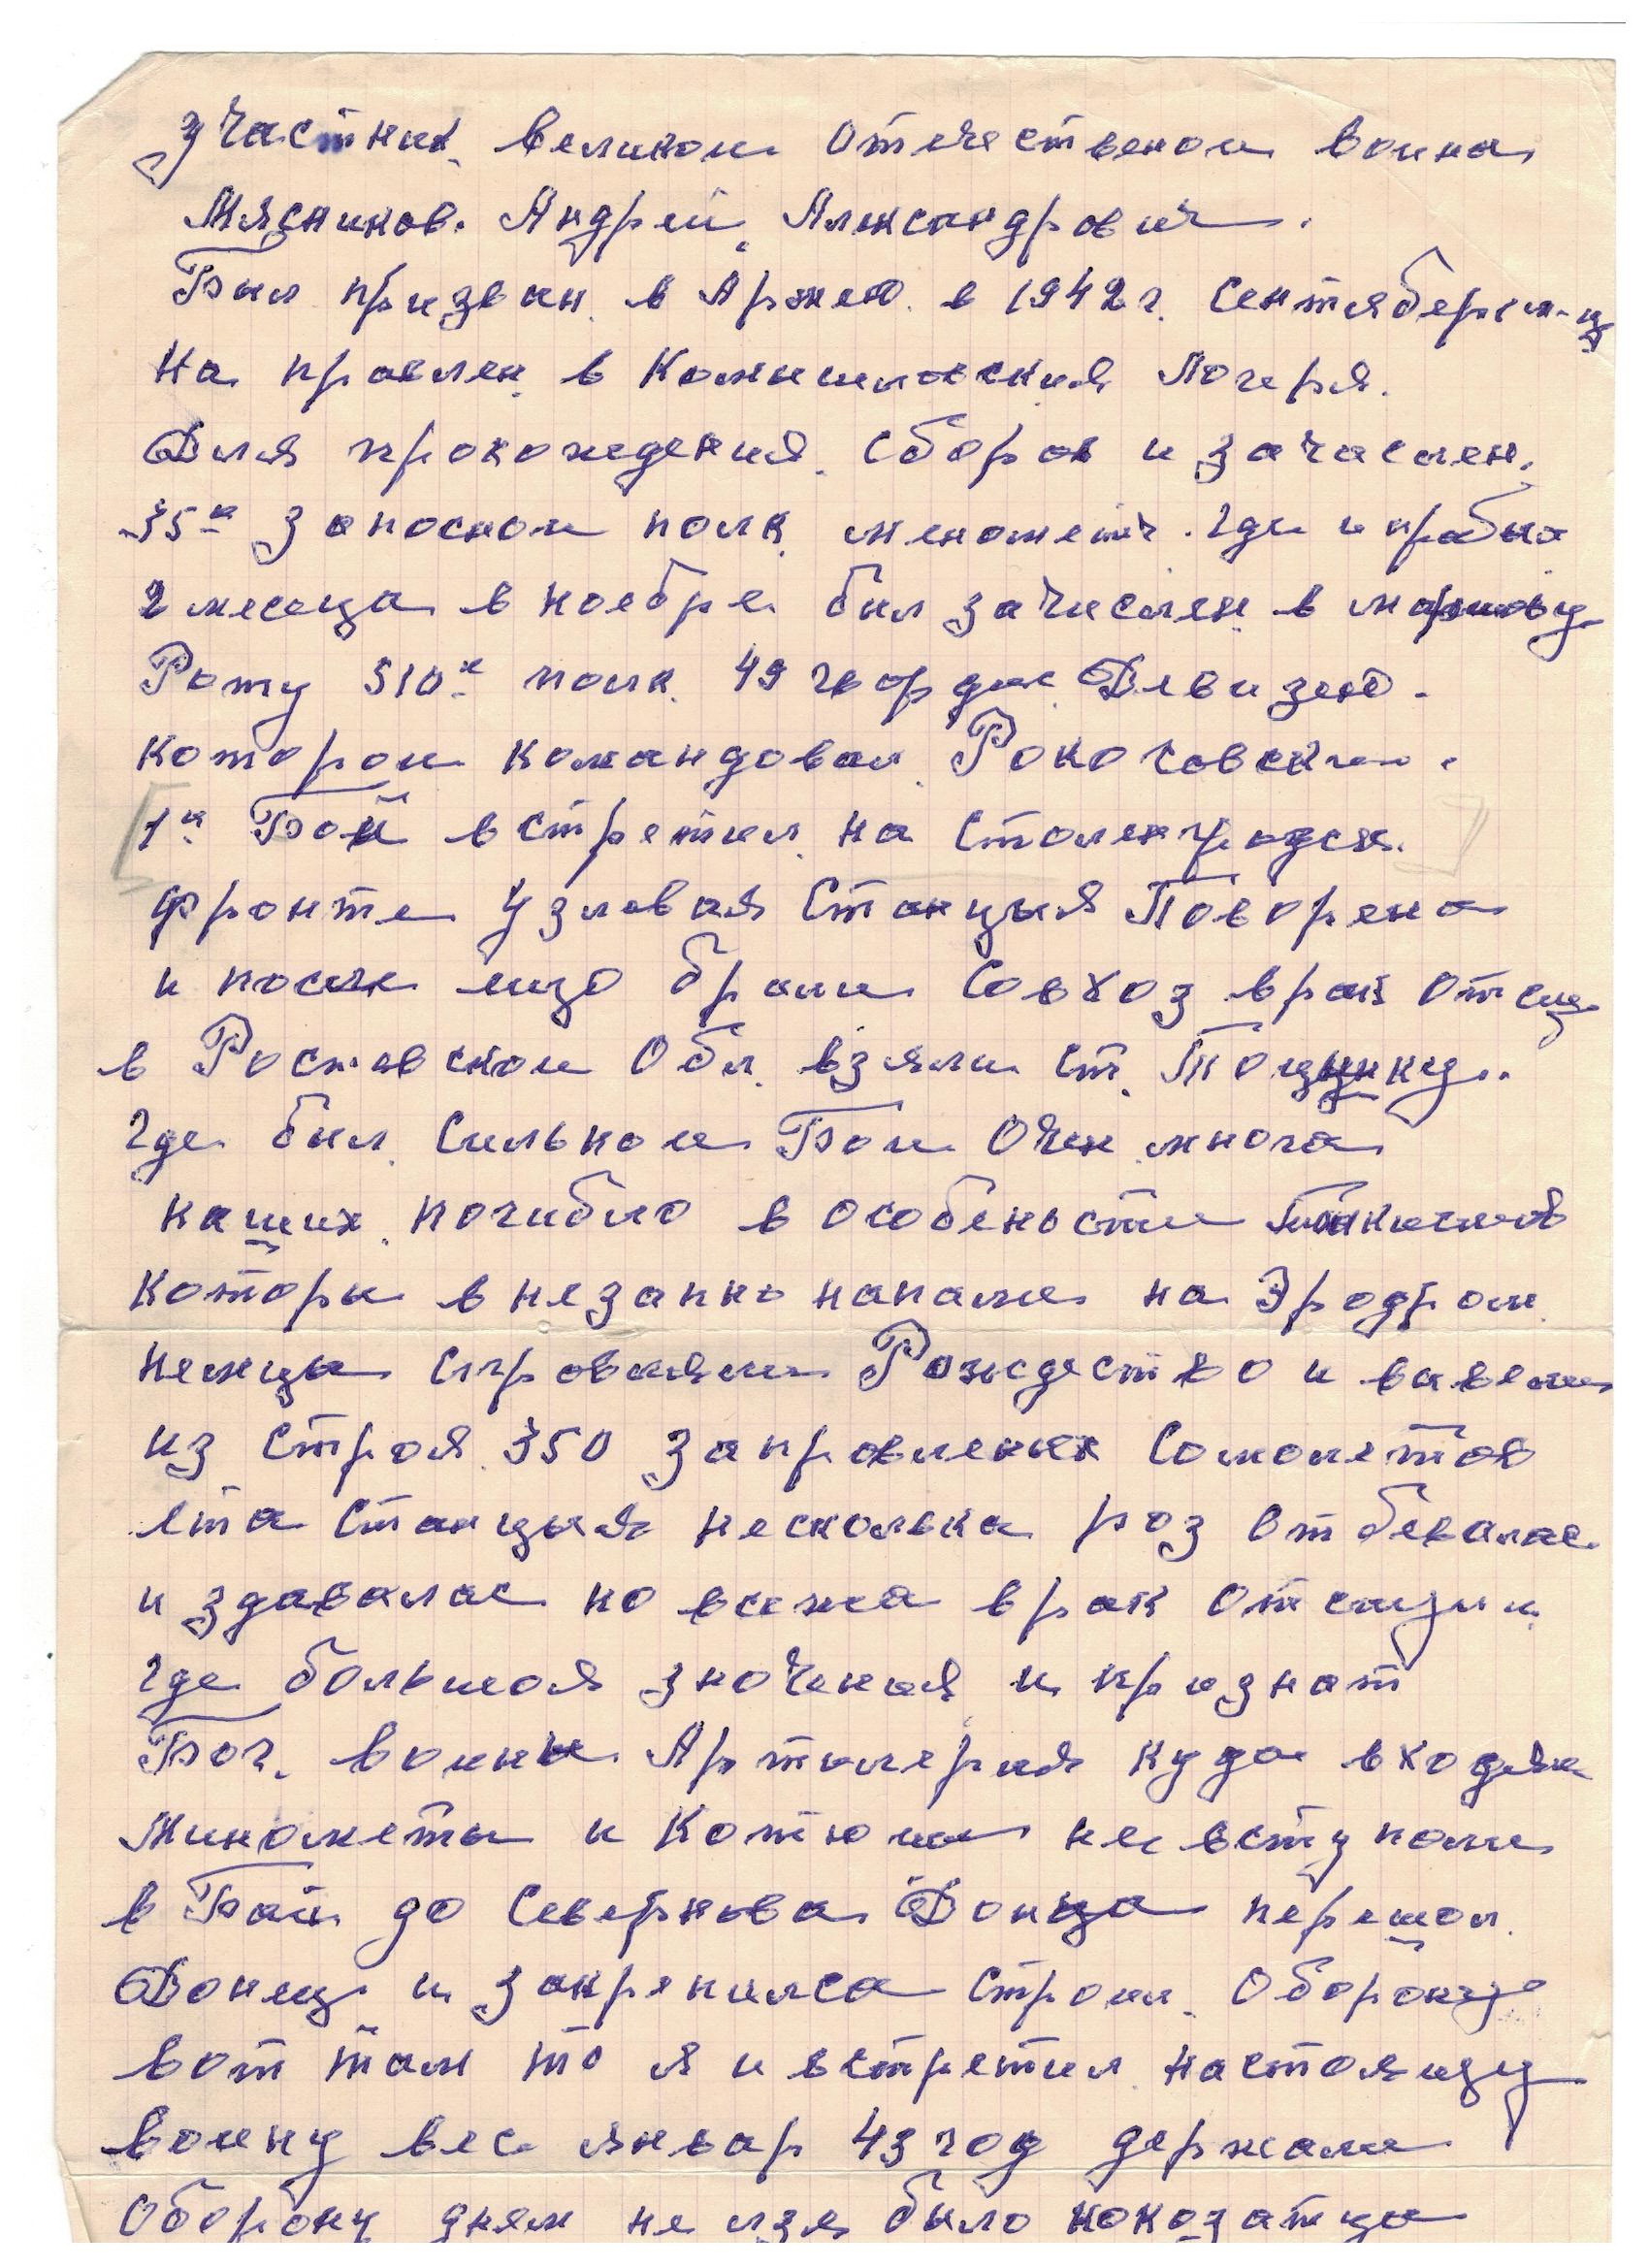 Участник великои отечественои воина
Мясников. Андрей Александрович.
Был призван в Армею в 1942 г. Сентябере м-ц
На правлен в Камышловския Логеря.
Для прохождения сборов и зачислен.
35й Запосной полк минометн. где и пробыл
2 месеца в ноебре был зачислен в маршову
Роту 510й полк 49 гвордие Девизею.
Которои командовал Рокосовский.
1й Бой встретил на Столенградск.
фронте Узловая Станцыя Поворена
и после ещо брали Совхоз врак отсц
в Ростовскои Обл. взяли ст. Тоцинку..
где был Сильнои Бои Очен многа
наших погибло в особеньсти Танкистов
Которы внезапно напали на Эродром
немцы справляли Рождество и вывели
из строя 350 заправленых Сомолетов
ета станцыя несколька роз отбевалас
и здавалас но всежа врак отсцпил
где большоя значения и признат
Бог. воины Артилерия куда входят
Минометы и Котюши не вступали
в Бой до Севернова Донца перешол
Донец и закрепилса строил Оборону
вот там то я и встретил настоящу
воину вес январ 43 год держали
Оборону днем не лзя было покозатца